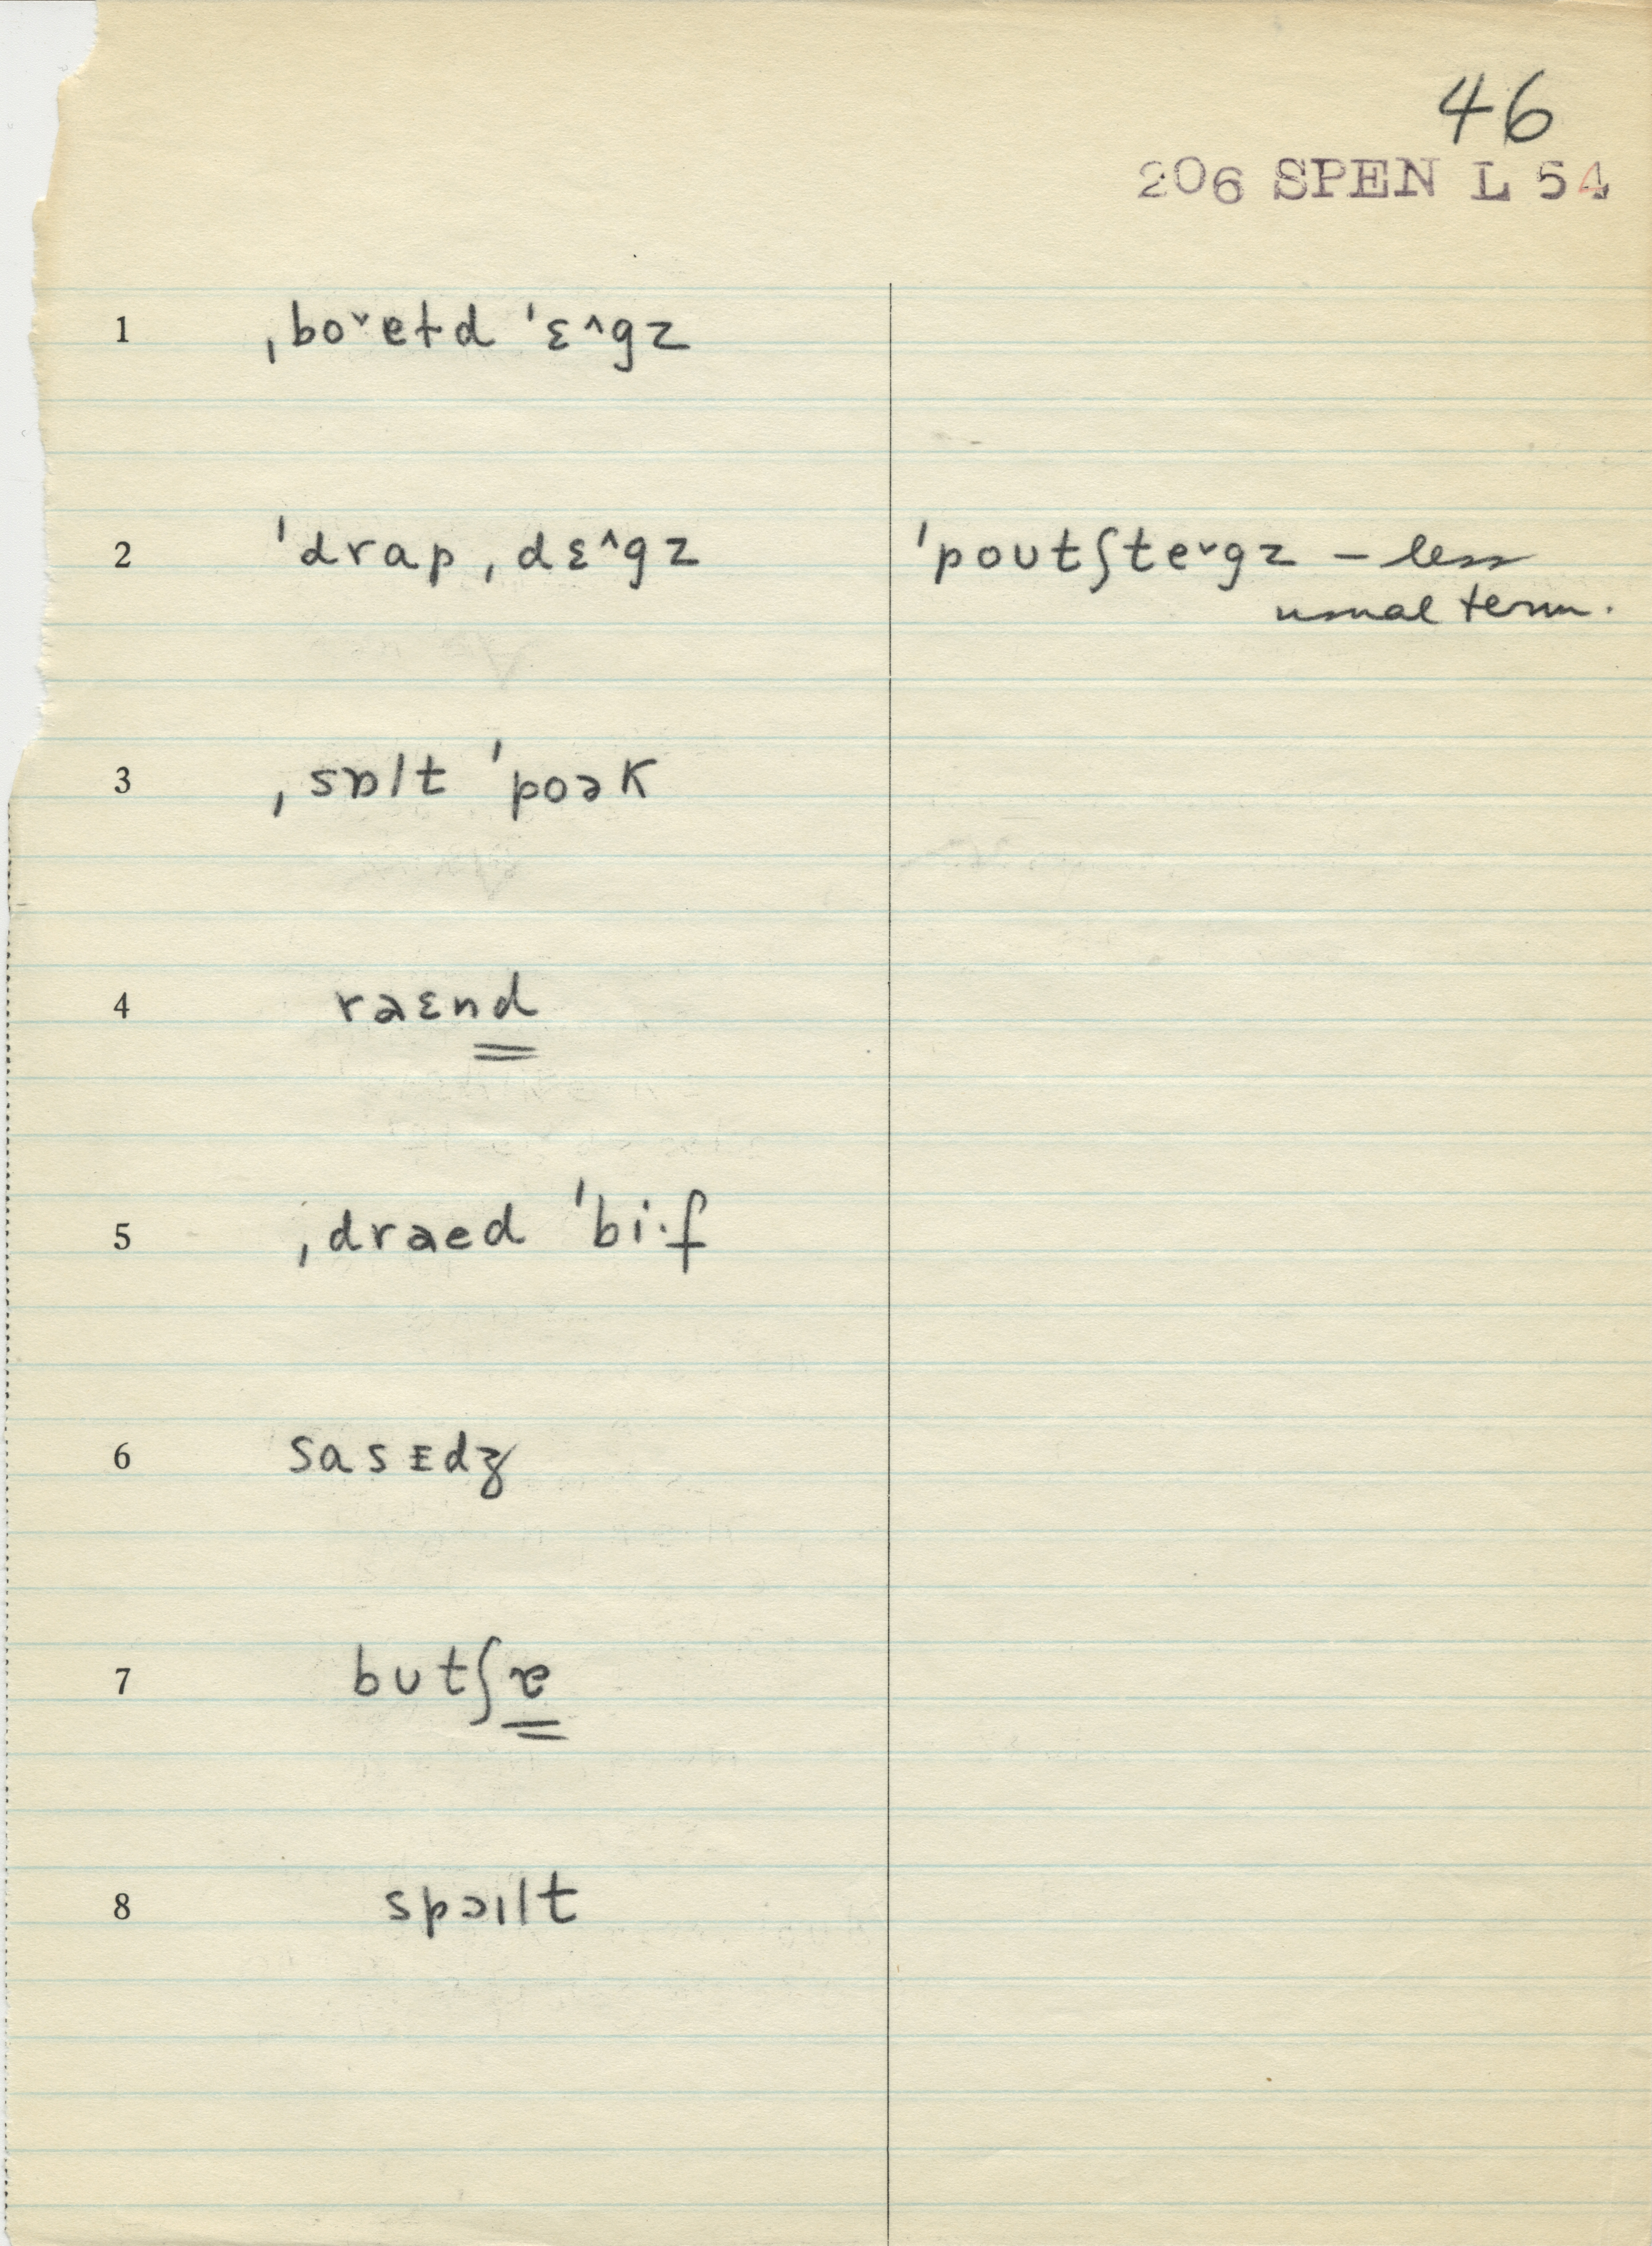 46
206 SPEN L 54
1 ˌbo˅ɐɫd ˈɛ^gz
2 ˈdrapˌdɛ^gz ˈpoutʃte˅gz – less
usual term.
3 ˌsɒlt ˈpoək
4 rɐɛnd
5 ˌdraɐd ˈbi·f
6 sasɪdʒ
7 butʃɐ
8 spɔɪlt